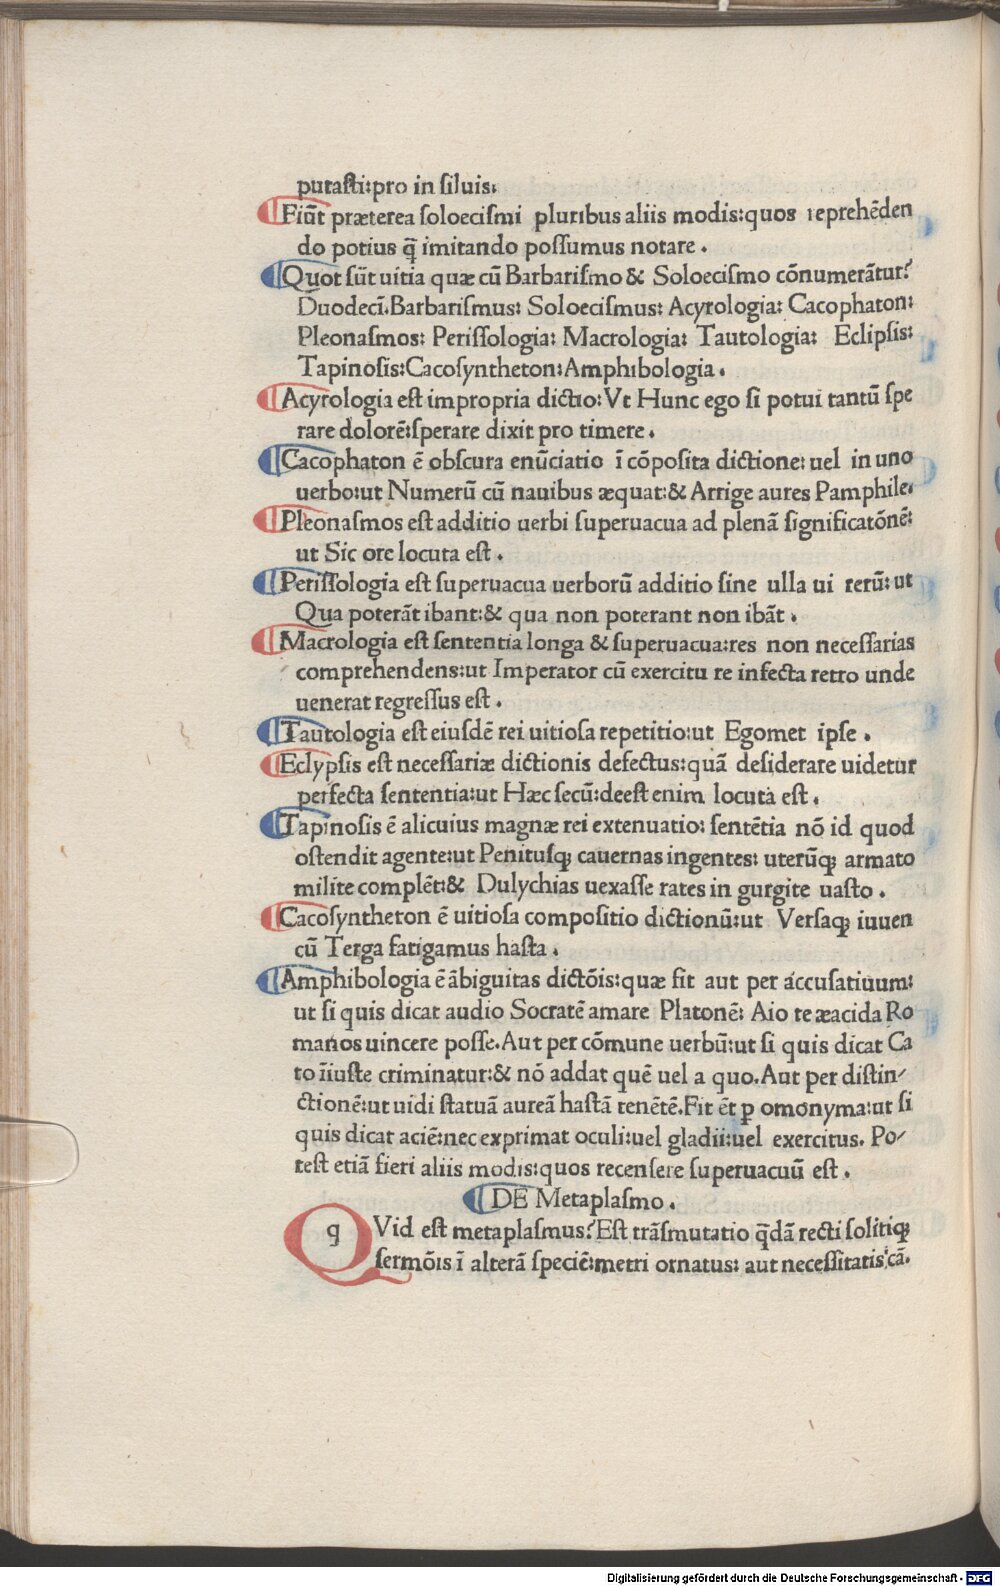 putasti:pro in siluis:
Fiūt præterea soloecismi pluribus aliis modis:quos reprehēden
do potius q̄ imitando possumus notare.
Quot sūt uitia quæ cū Barbarismo & Soloecismo cōnumerātur?
Duodecī.Barbarismus: Soloecismus: Acyrologia: Cacophaton:
Pleonasmos: Perissologia: Macrologia: Tautologia: Eclipsis:
Tapinosis:Cacosyntheton:Amphibologia.
Acyrologia est impropria dictio:Vt Hunc ego si potui tantū spe
rare dolorē:sperare dixit pro timere.
Cacophaton ē obscura enūciatio ī cōposita dictione: uel in uno
uerbo:ut Numerū cū nauibus æquat:& Arrige aures Pamphile.
Pleonasmos est additio uerbi superuacua ad plenā significatōnē:
ut Sic ore locuta est.
Perissologia est superuacua uerborū additio sine ulla ui rerū: ut
Qua poterāt ibant:& qua non poterant non ibāt.
Macrologia est sententia longa & superuacua:res non necessarias
comprehendens:ut Imperator cū exercitu re infecta retro unde
uenerat regressus est.
Tautologia est eiusdē rei uitiosa repetitio:ut Egomet ipse.
Eclypsis est necessariæ dictionis defectus:quā desiderare uidetur
perfecta sententia:ut Hæc secū:deest enim locuta est.
Tapinosis ē alicuius magnæ rei extenuatio: sentētia nō id quod
ostendit agente:ut Penitusq; cauernas ingentes: uterūq; armato
milite complēt:& Dulychias uexasse rates in gurgite uasto.
Cacosyntheton ē uitiosa compositio dictionū:ut Versaq; iuuen
cū Terga fatigamus hasta.
Amphibologia ē ābiguitas dictōis:quæ fit aut per accusatiuum:
ut si quis dicat audio Socratē amare Platonē: Aio te æacida Ro
manos uincere posse.Aut per cōmune uerbū:ut si quis dicat Ca
to īiuste criminatur:& nō addat quē uel a quo.Aut per distin/
ctionē:ut uidi statuā aureā hastā tenētē.Fit ēt ꝑ omonyma:ut si
quis dicat aciē:nec exprimat oculi:uel gladii:uel exercitus. Po/
test etiā fieri aliis modis:quos recensere superuacuū est.
DE Metaplasmo.
q Vid est metaplasmus?Est trāsmutatio q̄dā recti solitiq;
sermōis ī alterā speciē:metri ornatus: aut necessitatis cā.
Digitalisierung gefördert durch die Deutsche Forschungsgemeinschaft - DFG